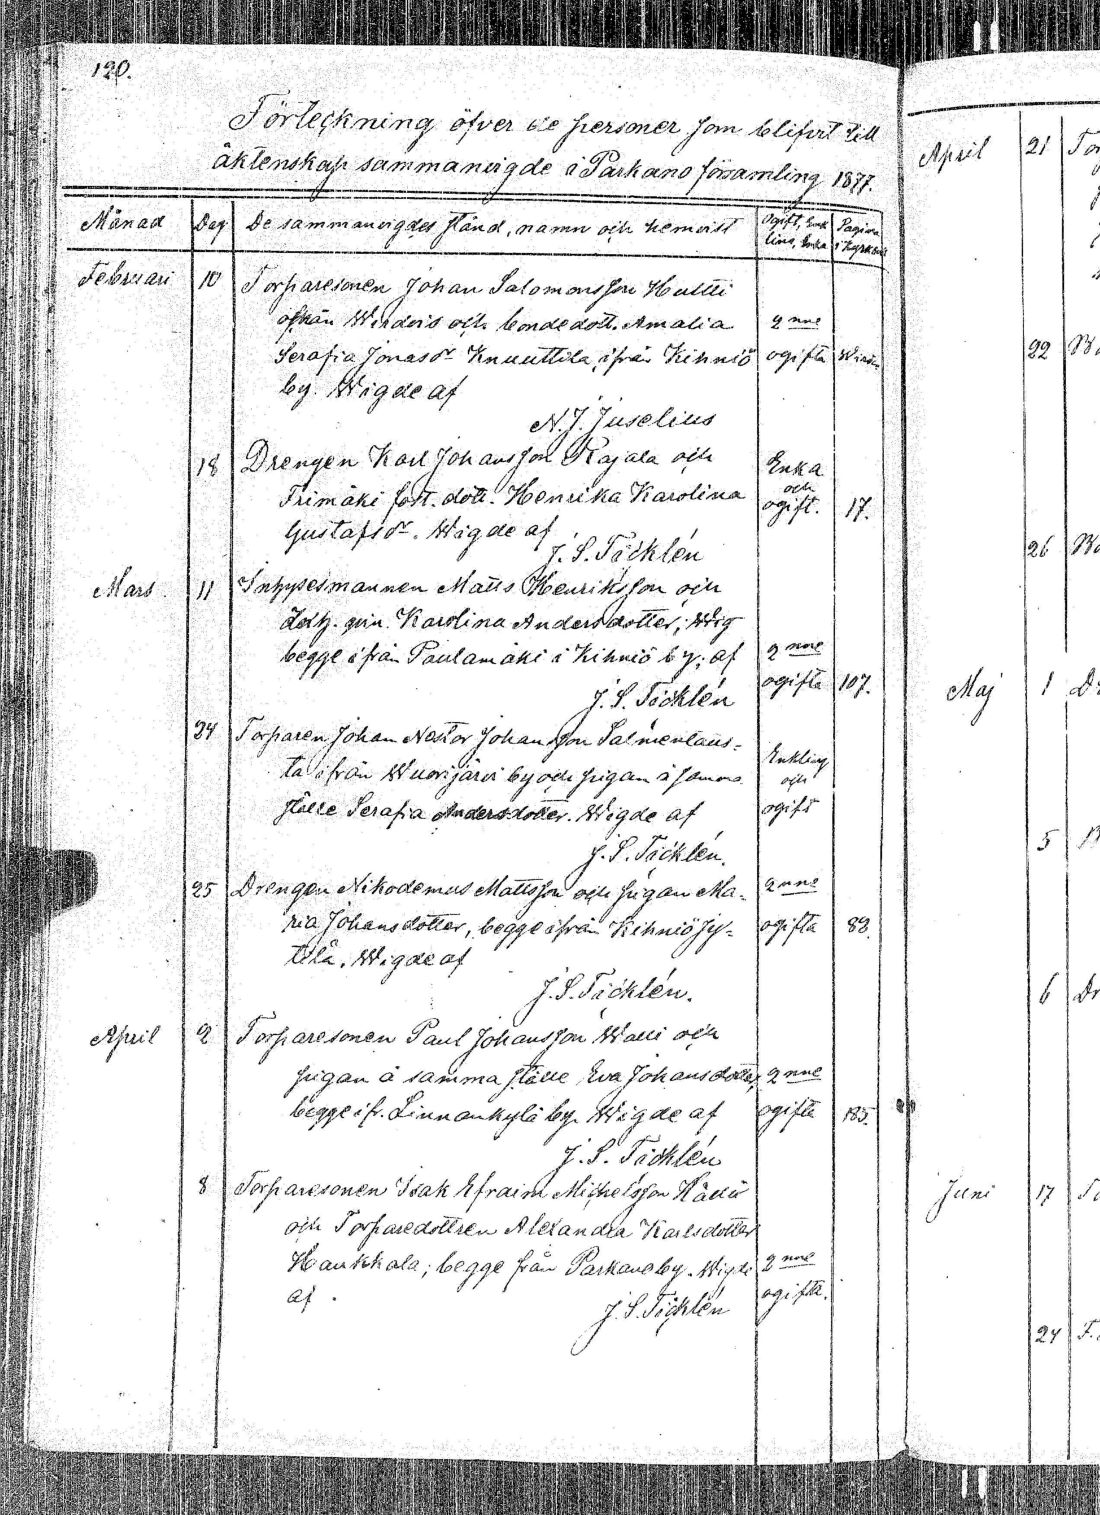 120.
Förteckning öfver de personer som blifvit till
äktenskap sammanvigde i Parkano församling 1877.
Månad Dag De sammanvigdes stånd, namn och hemvist Ogift, Enkling, Enka Pagina i Kyrkob.
Februari 10 Torparesonen Johan Salomonsson Hutti
ifrån Wirdois och bondedott. Amalia 2nne
Serafia Jonasdr Knuuttila, ifrån Kihniö ogifta
by. Wigde af
N. J. Juselius
18 Drengen Karl Johansson Rajala och Enka
och
dott. Henrika Karolina ogift. 17.
Gustafsdr. Wigde af
J. S. Täcklén
Mars 11 Inhysesmannen Matts Henriksson och
Karolina Andersdotter; Wig
begge ifrån Paulamäki i Kihniö by; af 2nne
J. S. Täcklén ogifta 107.
24 Torparen Johan Nestor Johansson Salmenlaus-
ta ifrån Wuorijärvi by och pigan å samma Enkling
och
ställe Serafia Andersdotter. Wigde af ogift
J. S. Täcklén.
25 Drengen Nikodemus Mattsson och pigan Ma- 2nne
ria Johansdotter, begge ifrån Kihniö Jy- ogifta 82.
lilä. Wigde af
J. S. Täcklén.
April 2 Torparesonen Paul Johansson Walli och
pigan å samma ställe Eva Johansdotter, 2nne
begge ifr. Linnankylä by. Wigde af ogifta 185.
J. S. Täcklén
8 Torparesonen Isak Efraim Michelsson
och Torparedottren Alexandra Karlsdotter
Haukkala; begge från Parkano by. Wigde 2nne
af. ogifta.
J. S. Täcklén
April 21
22
26
Maj 1
5
6 Dr
Juni 17
24